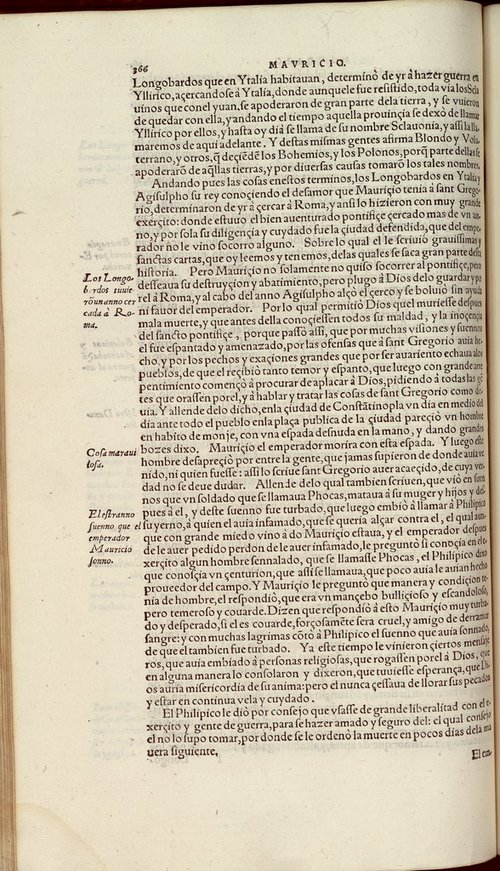 366
MAVRICIO.
Longobardos que en Ytalia habitauan, determinò de yr à hazer guerra en
Yllirico, açercandose a Ytalia, donde aunque fue resistido, toda via los Scla
uinos que con el yuan, se apoderaron de gran parte dela tierra, y se vinieron
de quedar con ella, y andando el tiempo aquella prouinçia se dexò de llamar
Yllyrico por ellos, y hasta oy dià se llama de su nombre Sclauonia, y assi la lla
maremos de aqui adelante. Y destas mismas gentes afirma Blondo y Vola
terrano, y otros, q̃ deçiẽdẽ los Bohemios, y los Polonos, porq̃ parte dellas se
apoderarõ de aq̃llas tierras, y por diuersas causas tomarõ los tales nombres.
Andando pues las cosas enestos terminos, los Longobardos en Ytalia y
Agisulpho su rey conoçiendo el desamor que Mauriçio tenia à sant Grego-
rio, determinaron de yr à çercar à Roma, y ansi lo hizieron con muy grande
exerçito: donde estuuo el bien auenturado pontifiçe çercado mas de vn an-
no, y por sola su diligençia y cuydado fue la çiudad defendida, que del empe-
rador no le vino socorro alguno. Sobre lo qual el le scriuiò grauissimas y
sanctas cartas, que oy leemos y tenemos, delas quales se saca gran parte desta
historia. Pero Mauriçio no solamente no quiso socorrer al pontifiçe, pero
desseaua su destruyçion y abatimiento, pero plugo à Dios delo guardar y po
rel à Roma, y al cabo del anno Agisulpho alçò el çerco y se boluiò sin ayuda
ni fauor del emperador. Por lo qual permitiò Dios quel muriesse despues
mala muerte, y que antes della conoçiessen todos su maldad, y la inoçençia
del sancto pontifiçe, porque passò assi, que por muchas visiones y suennos
el fue espantado y amenazado, por las ofensas que à sant Gregorio auia he-
cho, y por los pechos y exaçiones grandes que por ser auariento echaua alos
pueblos, de que el reçibiò tanto temor y espanto, que luego con grande arre
pentimiento començò à procurar de aplacar à Dios, pidiendo à todas las gẽ
tes que orassen por el, y à hablar y tratar las cosas de sant Gregorio como de-
uia. Y allende delo dicho, enla çiudad de Constãtinopla vn dia en medio del
dia ante todo el pueblo enla plaça publica de la çiudad pareçiò vn hombre
en habito de monje, con vna espada desnuda en la mano, y dando grandes
bozes dixo. Mauriçio el emperador morira con esta espada. Y luego este
hombre desapreçiò por entre la gente, que jamas supieron de donde auia ve
nido, ni quien fuesse: assi lo scriue sant Gregorio auer acaeçido, de cuya ver-
dad no se deue dudar. Allende delo qual tambien scriuen, que viò en suen
nos que vn soldado que se llamaua Phocas, mataua à su muger y hijos y des-
pues à el, y deste suenno fue turbado, que luego embiò a llamar à Philipico
su yerno, à quien el auia infamado, que se queria alçar contra el, el qual aun-
que con grande miedo vino à do Mauriçio estaua, y el emperador despues
de le auer pedido perdon de le auer infamado, le preguntò si conoçia en el e-
xerçito algun hombre sennalado, que se llamasse Phocas, el Philipico dixo
que conosçia vn çenturion, que assi se llamaua, que poco auia le auian hecho
proueedor del campo. Y Mauriçio le preguntò que manera y condiçion te-
nia de hombre, el respondiò, que era vn mançebo bulliçioso y escandoloso,
pero temeroso y couarde. Dizen que respondiò à esto Mauriçio muy turba-
do y desperado, si el es couarde, forçosamẽte sera cruel, y amigo de derramar
sangre: y con muchas lagrimas cõtò à Philipico el suenno que auia sonnado,
de que el tambien fue turbado. Ya este tiempo le vinieron çiertos mensaje-
ros, que auia embiado à personas religiosas, que rogassen por el à Dios, que
en alguna manera lo consolaron y dixeron, que tuuiesse esperança, que Di-
os auria misericordia de su anima: pero el nunca çessaua de llorar sus pecados
y estar en continua vela y cuydado.
El Philipico le diò por consejo que vsasse de grande liberalitad con el e-
xerçito y gente de guerra, para se hazer amado y seguro del: el qual consejo
el no lo supo tomar, por donde se le ordenò la muerte en pocos dias dela ma
nera siguiente,
El em-
Los Longo-
bardos tuuie
rõ vn anno cer
cada à Ro-
ma.
Cosa maraui
llosa.
El estranno
suenno que el
emperador
Mauricio
sonno.